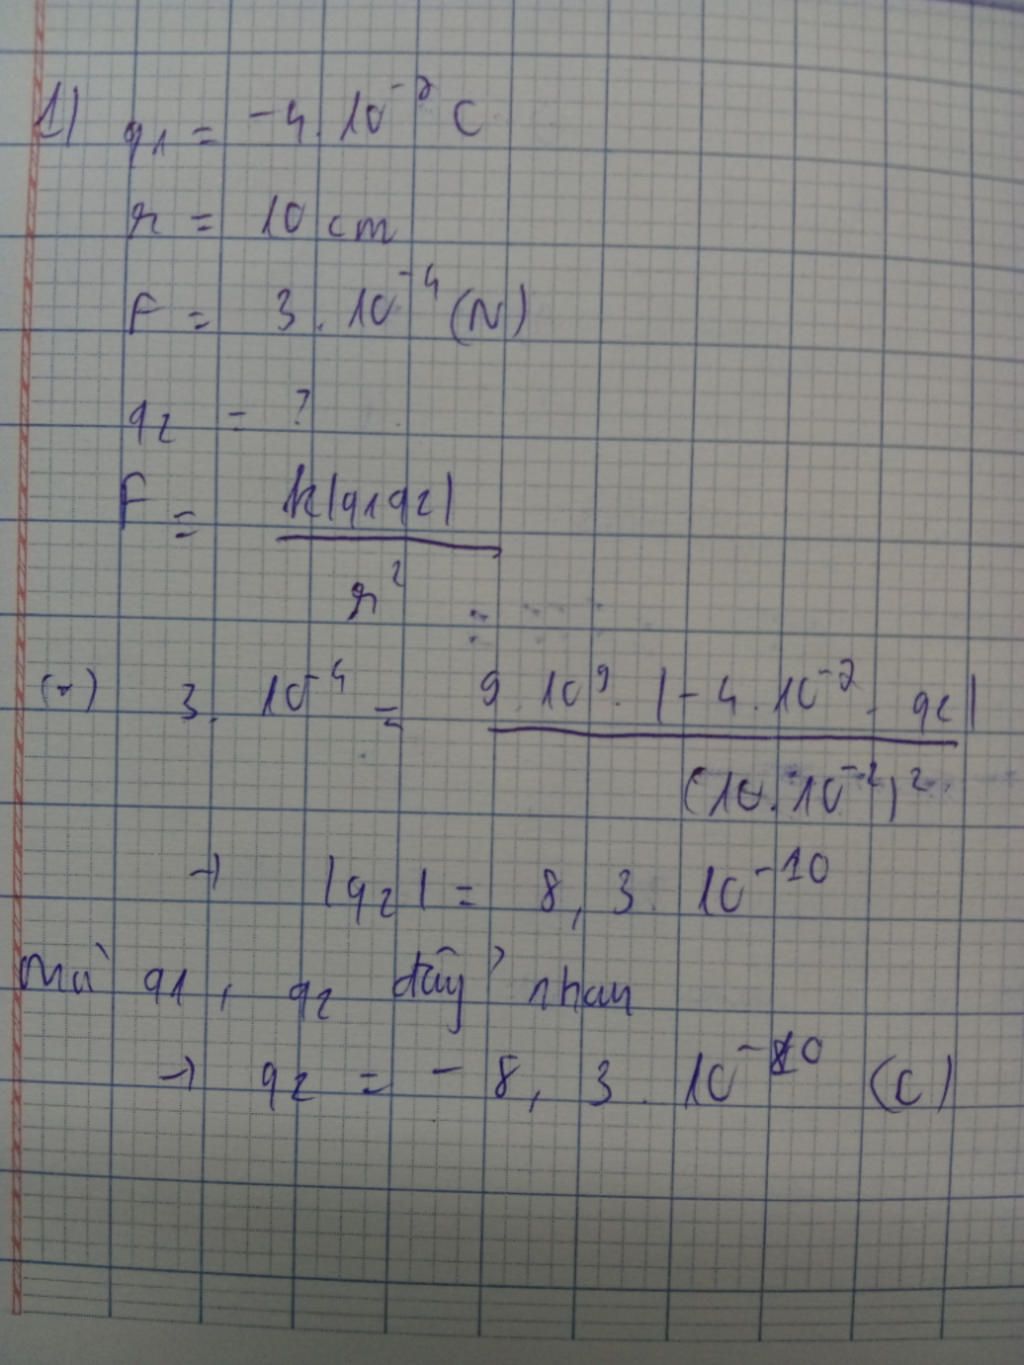 1) q1 = -4.10⁻⁷ C
r = 10 cm
F = 3.10⁻⁴ (N)
q2 = ?
F = k|q1q2| / r²
(→) 3.10⁻⁴ = 9.10⁹.|-4.10⁻⁷.q2| / (10.10⁻²)²
→ |q2| = 8,3.10⁻¹⁰
Mà q1, q2 đẩy nhau
→ q2 = -8,3.10⁻¹⁰ (C)